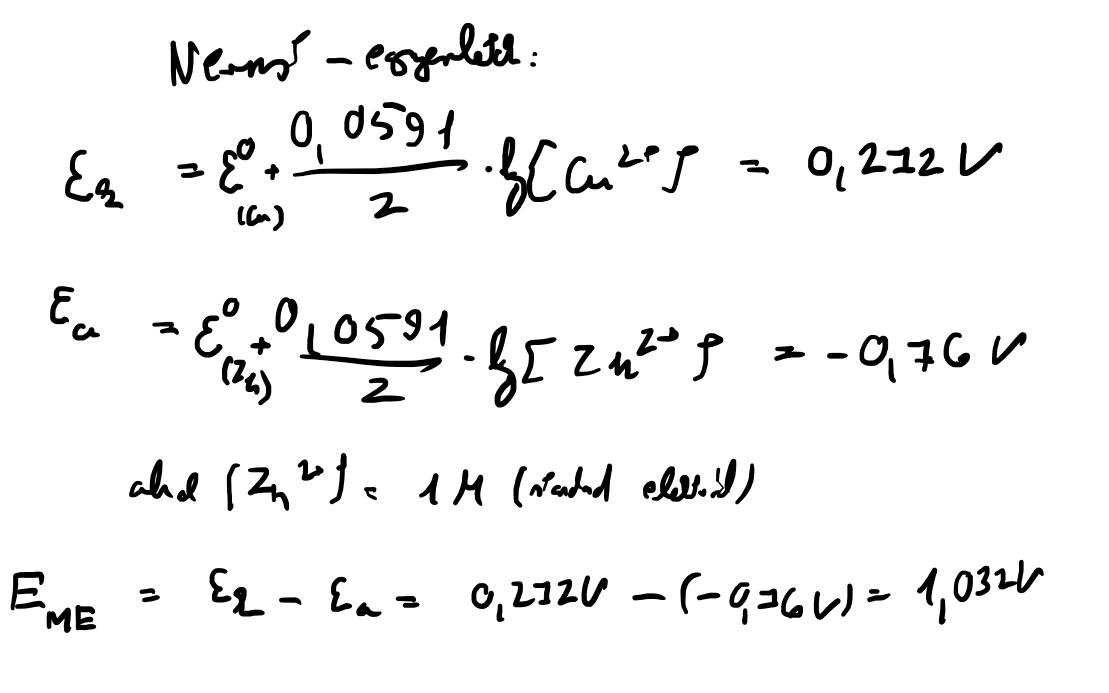 Nernst - egyenlet:
ε_k = ε⁰_(Cu) + 0,0591/2 · lg[Cu²⁺] = 0,272 V
ε_a = ε⁰_(Zn) + 0,0591/2 · lg[Zn²⁺] = -0,76 V
ahol [Zn²⁺] = 1M (standard elektród)
E_ME = ε_k - ε_a = 0,272V - (-0,76V) = 1,032V